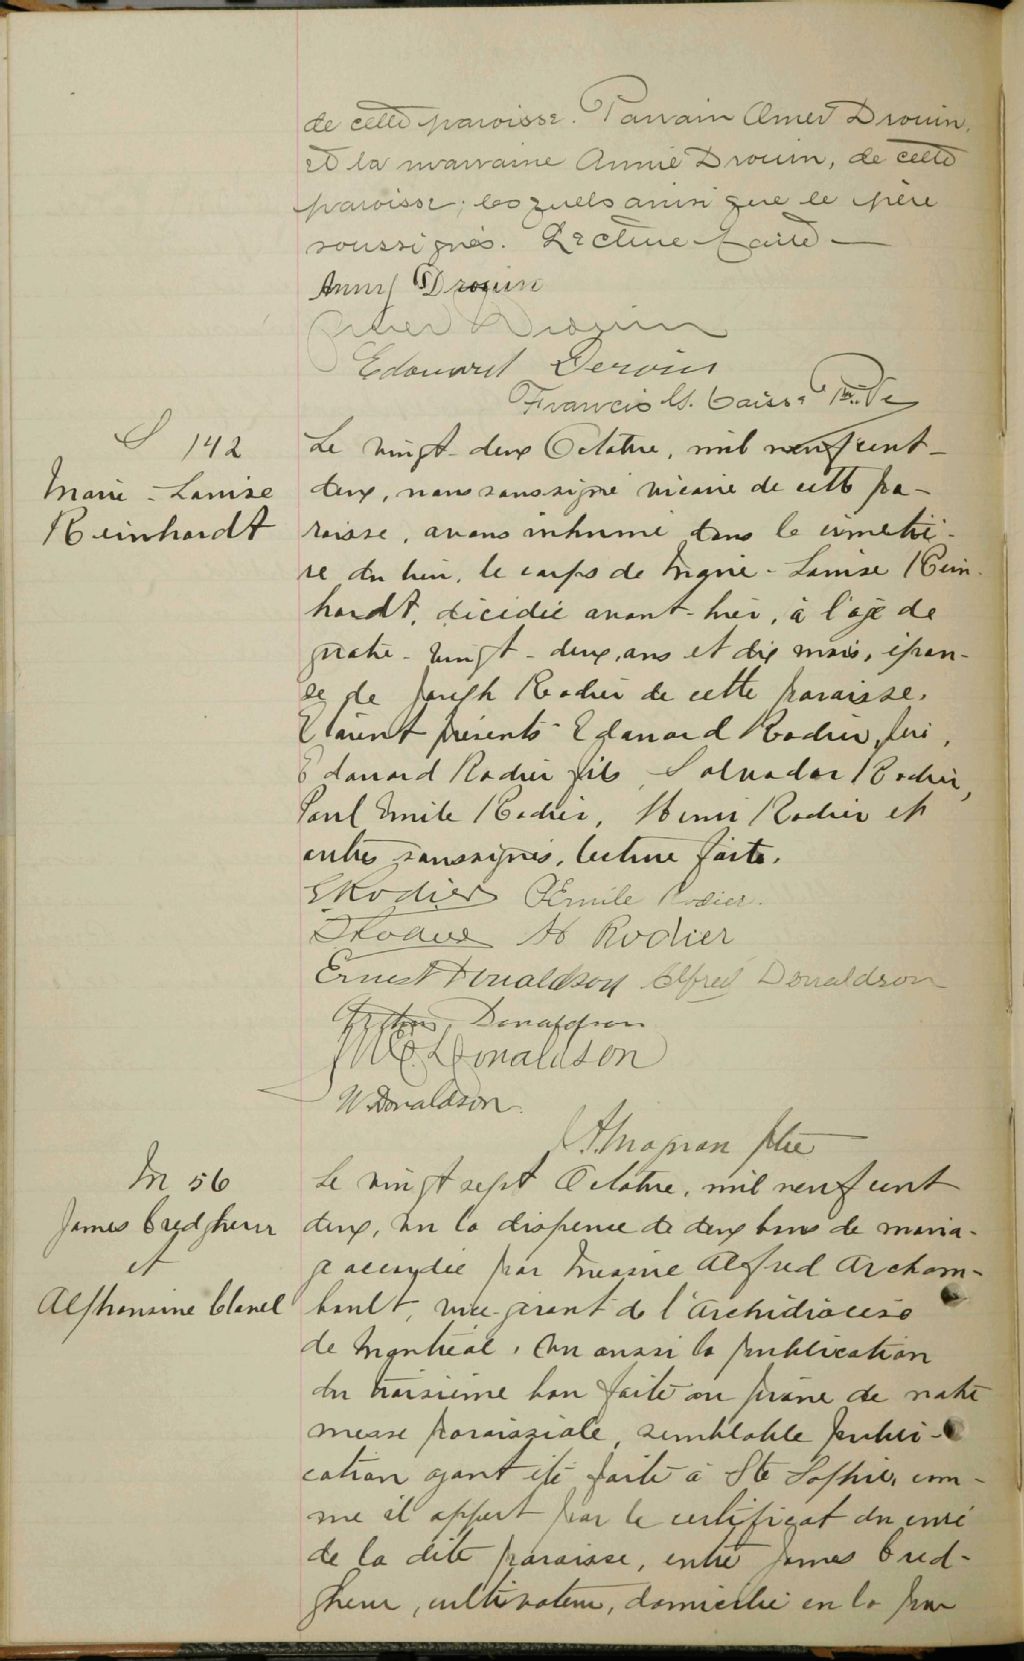 de cette paroisse. Parrain Omer Drouin,
et la marraine Annie Drouin, de cette
paroisse; lesquels ainsi que le père
soussignés. Lecture faite —
Anny Drouin
Omer Drouin
Edouard Derouin
Francis
S 142
Marie-Louise
Reinhardt
Le vingt-deux Octobre, mil neuf cent-
deux, nous soussigné vicaire de cette pa-
roisse, avons inhumé dans le cimetiè-
re du lieu, le corps de Marie-Louise Rein-
hardt, décédée avant-hier, à l'age de
quatre-vingt-deux ans et dix mois, épou-
se de Joseph Rodier de cette paroisse.
Etaient présents Edouard Rodier,
Edouard Rodier fils, Salvador Rodier,
Paul Emile Rodier, Henri Rodier et
autres soussignés, lecture faite.
E Rodier P Emile Rodier.
S Rodier H Rodier
Ernest Donaldson Alfred Donaldson
Arthur Donaldson
Donaldson
W. Donaldson
Magnan Ptre
M 56
James Credgheur
et
Alphonsine Clavel
Le vingt sept Octobre, mil neuf cent
deux, vu la dispense de deux bans de maria-
ge accordée par Messire Alfred Archam-
bault, vice-gérant de l'Archidiocèse
de Montréal, vu aussi la publication
du troisième ban faite au prône de notre
messe paroissiale, semblable publi-
cation ayant été faite à Ste Sophie, com-
me il appert par le certificat du curé
de la dite paroisse, entre James Cred-
gheur, cultivateur, domicilié en la par